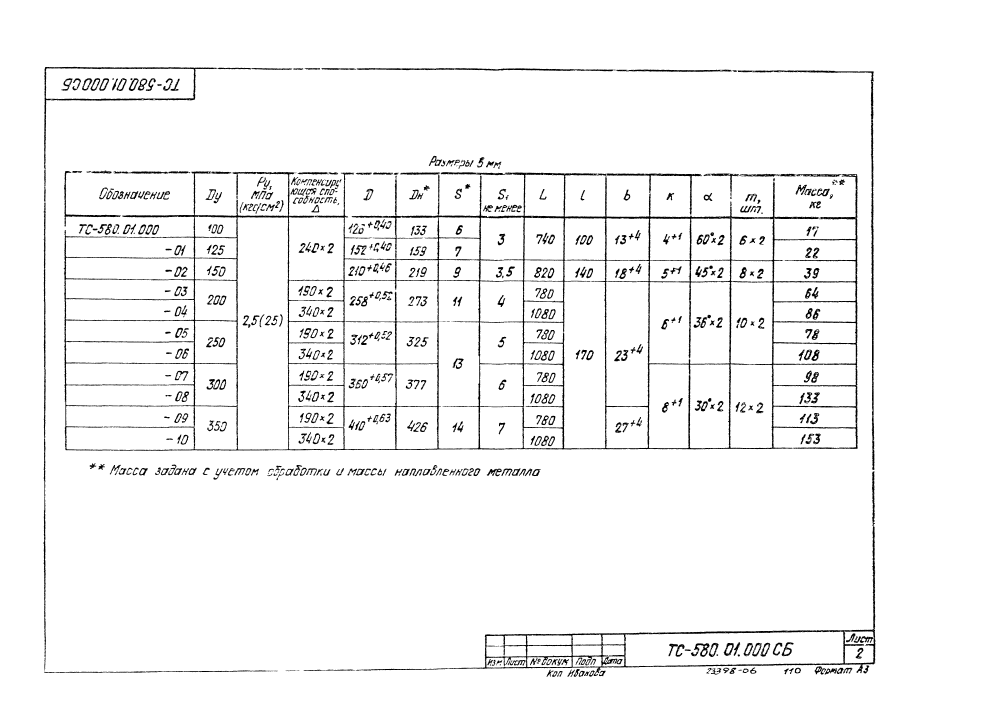 ТС-580.01.000СБ
Размеры в мм
Обозначение | Dу | Pу, мПа (кгс/см²) | Компенсирующая способность, Δ | D | Dн* | S* | S₁ не менее | L | l | b | к | α | m, шт. | Масса,** кг
ТС-580.01.000 | 100 | 2,5(25) | 240×2 | 126+0,40 | 133 | 6 | 3 | 740 | 100 | 13+4 | 4+1 | 60°×2 | 6×2 | 17
-01 | 125 | 152+0,40 | 159 | 7 | 22
-02 | 150 | 210+0,46 | 219 | 9 | 3,5 | 820 | 140 | 18+4 | 5+1 | 45°×2 | 8×2 | 39
-03 | 200 | 190×2 | 258+0,52 | 273 | 11 | 4 | 780 | 170 | 23+4 | 6+1 | 36°×2 | 10×2 | 64
-04 | 340×2 | 1080 | 86
-05 | 250 | 190×2 | 312+0,52 | 325 | 13 | 5 | 780 | 78
-06 | 340×2 | 1080 | 108
-07 | 300 | 190×2 | 360+0,57 | 377 | 6 | 780 | 8+1 | 30°×2 | 12×2 | 98
-08 | 340×2 | 1080 | 133
-09 | 350 | 190×2 | 410+0,63 | 426 | 14 | 7 | 780 | 27+4 | 113
-10 | 340×2 | 1080 | 153
** Масса задана с учетом обработки и массы наплавленного металла
Изм Лист № докум Подп Дата
ТС-580.01.000 СБ
Лист
2
Коп Иванова
23398-06 110 Формат А3